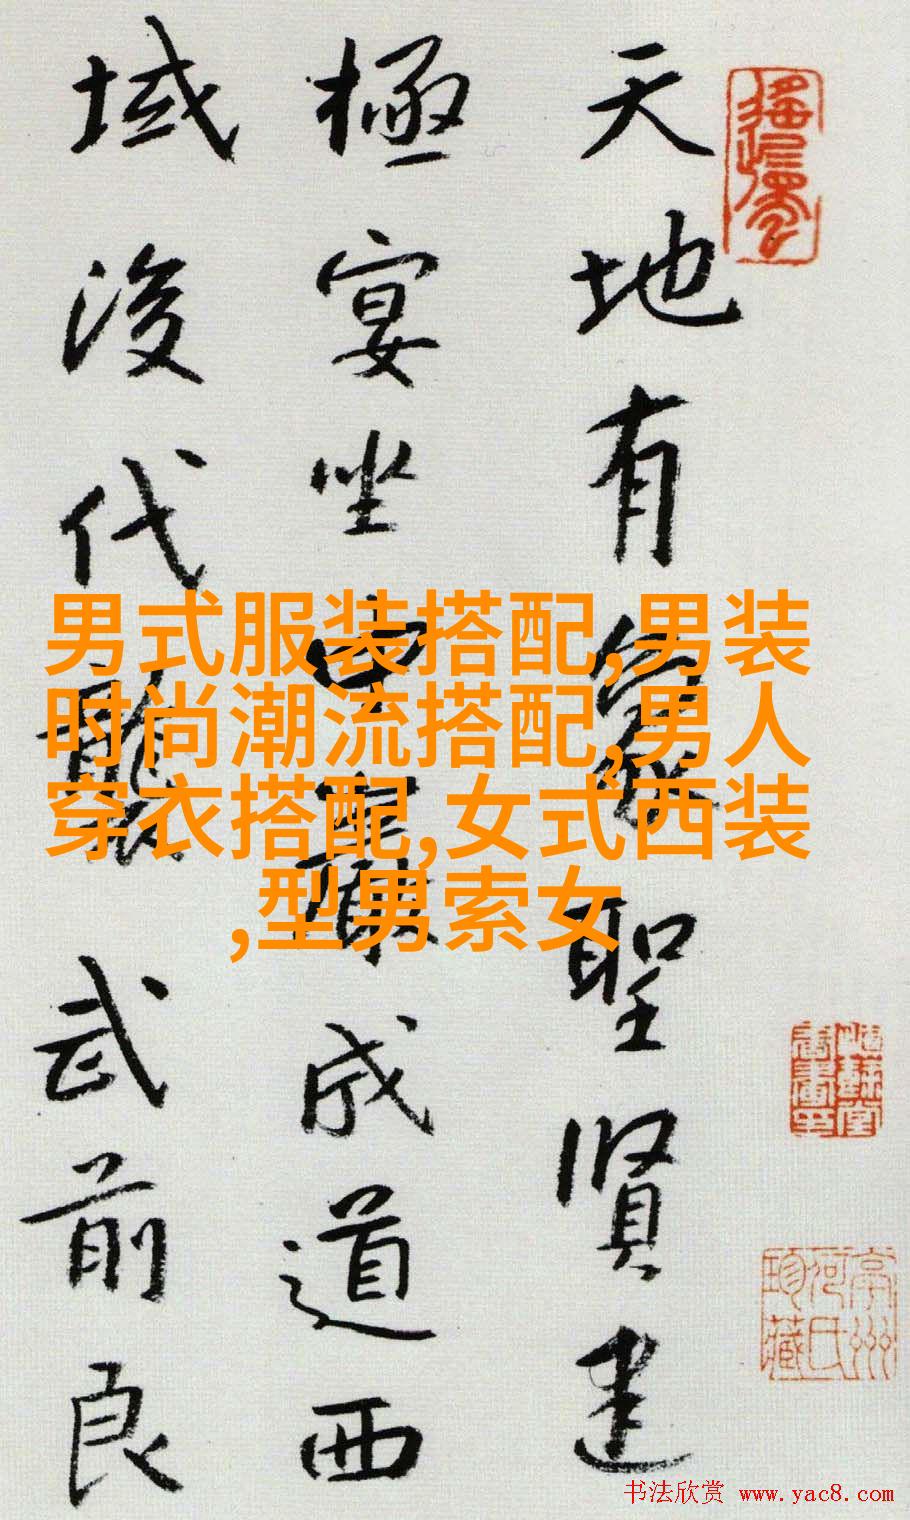 天地有象聖賢建
極宴坐成道西
域後代襲武前良
男式服装搭配,男装
时尚潮流搭配,男人
穿衣搭配,女式西装
,型男索女
亭州
何氏
珍藏
书法欣赏 www.yac8.com